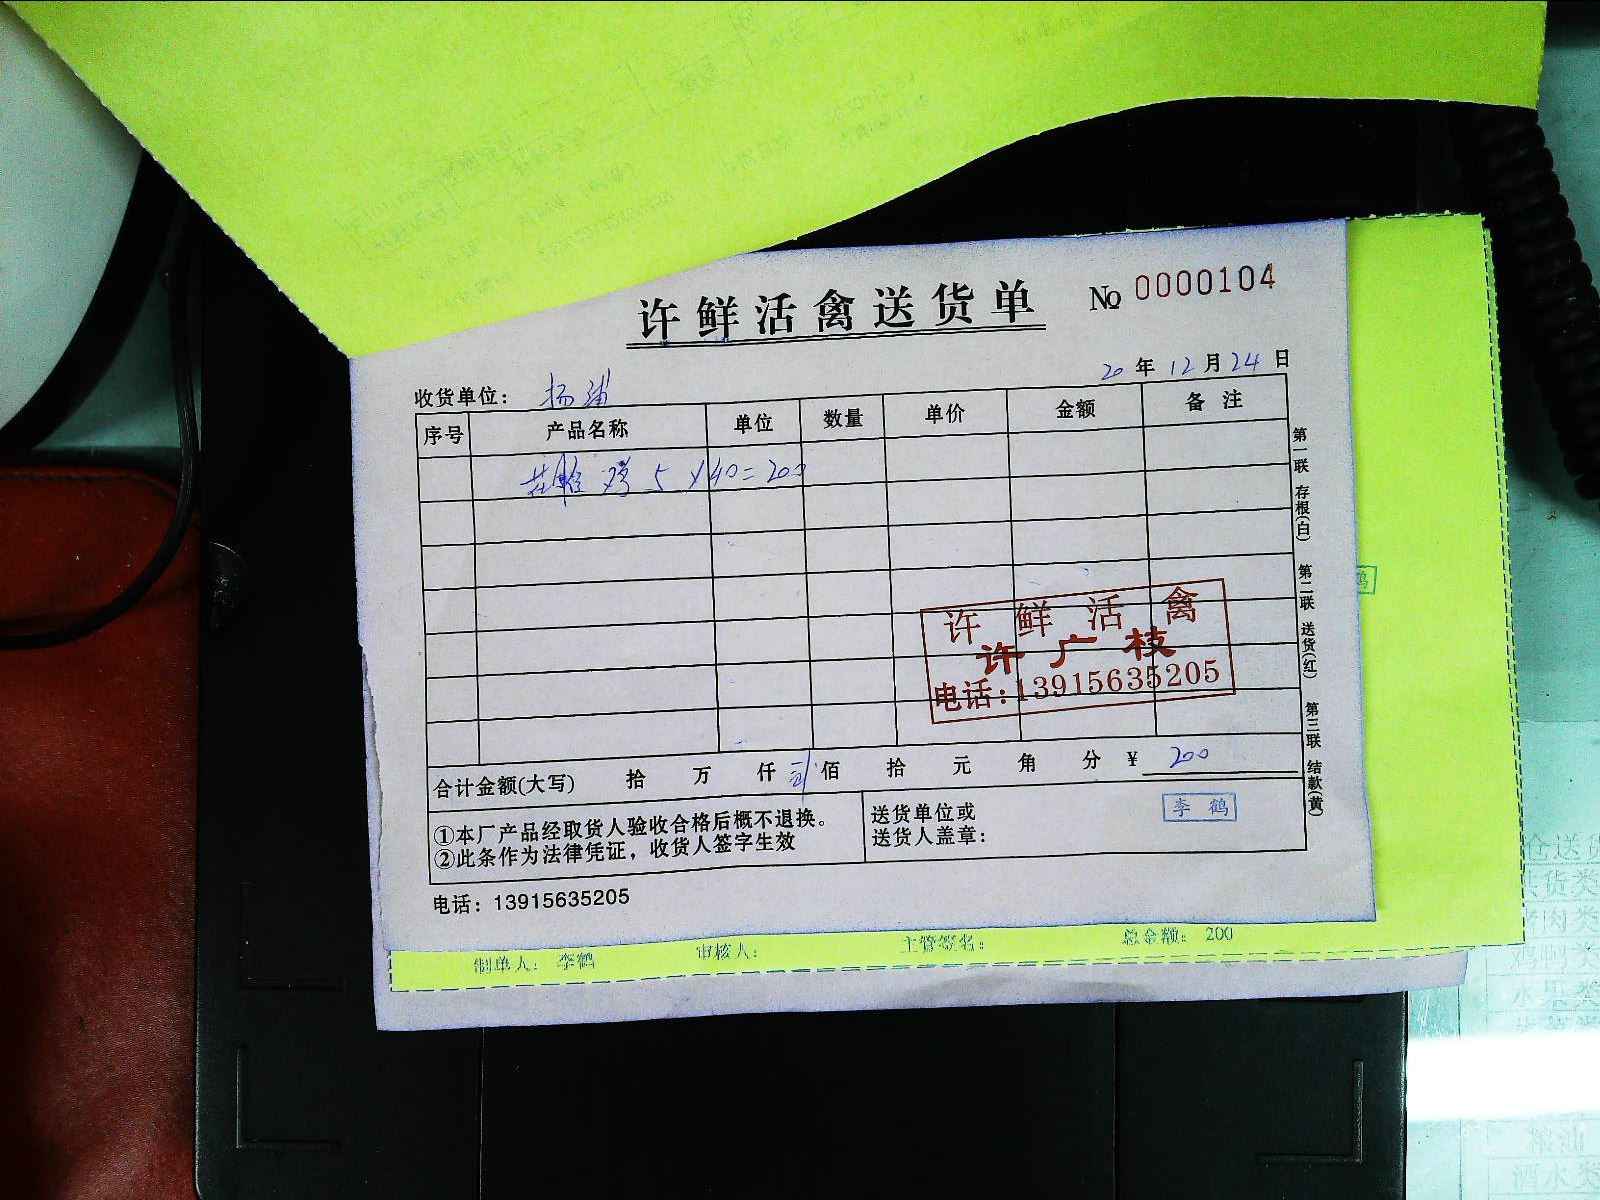 许鲜活禽送货单 No 0000104
20 年 12 月 24 日
收货单位: 杨浦
序号 产品名称 单位 数量 单价 金额 备注
鸡 5 ×40=200
第一联 存根(白) 第二联 送货(红) 第三联 结款(黄)
许鲜活禽
许广枝
电话:13915635205
合计金额(大写) 拾 万 仟 贰 佰 拾 元 角 分 ¥ 200
①本厂产品经取货人验收合格后概不退换。
②此条作为法律凭证，收货人签字生效
送货单位或
送货人盖章:
李鹤
电话: 13915635205
制单人: 李鹤 审核人: 主管签名: 总金额: 200
鹤
仓送货
货类
肉类
鸡鸭类
水果类
粮油
酒水类